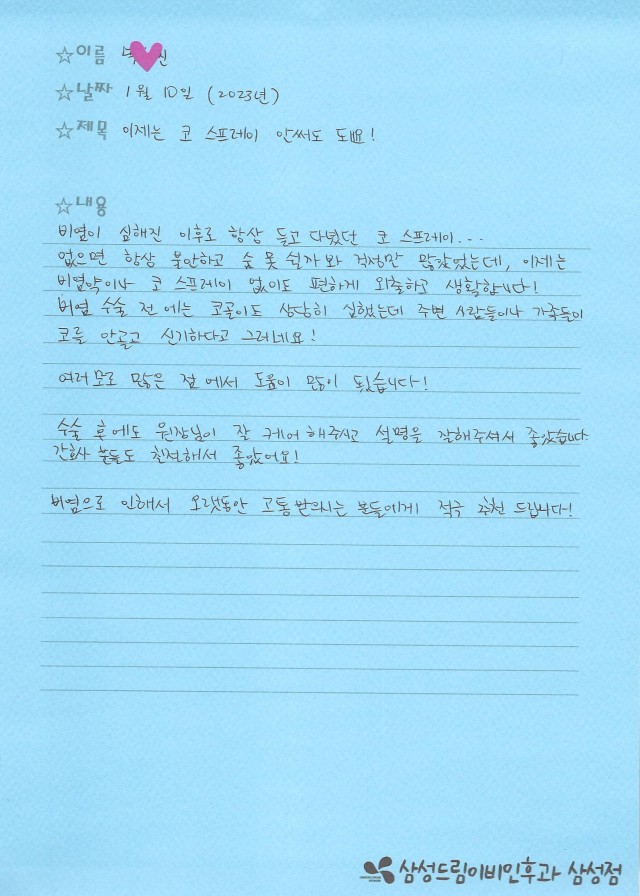 ☆이름 박 신
☆날짜 1월 10일 (2023년)
☆제목 이제는 코 스프레이 안써도 되요!
☆내용
비염이 심해진 이후로 항상 들고 다녔던 코 스프레이...
없으면 항상 불안하고 숨 못 쉴까봐 걱정만 많았었는데, 이제는
비염약이나 코 스프레이 없이도 편하게 외출하고 생활합니다!
비염 수술 전에는 코골이도 상당히 심했는데 주변 사람들이나 가족들이
코를 안골고 신기하다고 그러네요!
여러모로 많은 점에서 도움이 많이 됬습니다!
수술 후에도 원장님이 잘 케어해주시고 설명을 잘해주셔서 좋았습니다
간호사 분들도 친절해서 좋았어요!
비염으로 인해서 오랫동안 고통받으시는 분들에게 적극 추천 드립니다!
삼성드림이비인후과 삼성점